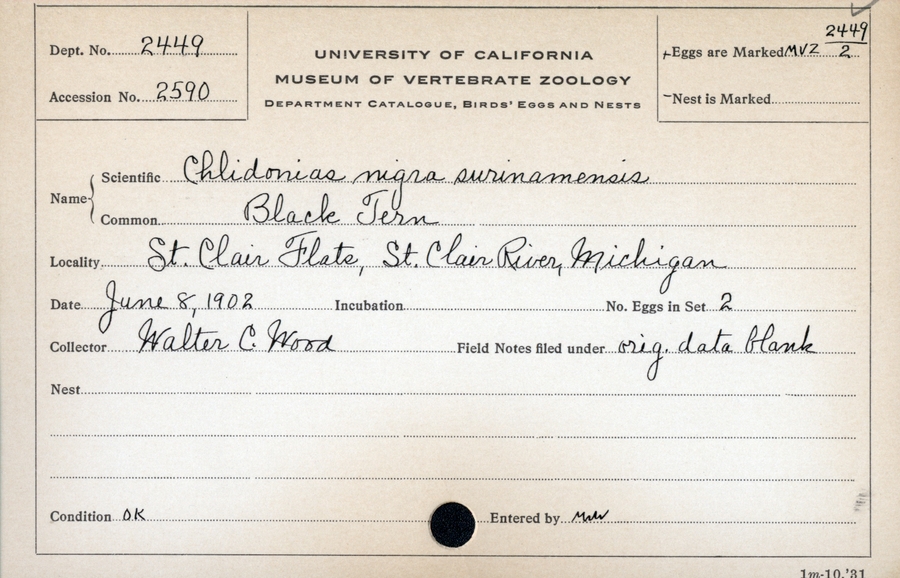 Dept. No. 2449
Accession No. 2590
UNIVERSITY OF CALIFORNIA
MUSEUM OF VERTEBRATE ZOOLOGY
DEPARTMENT CATALOGUE, BIRDS' EGGS AND NESTS
+Eggs are Marked MVZ 2449/2
-Nest is Marked
Name { Scientific Chlidonias nigra surinamensis
Common Black Tern
Locality St. Clair Flats, St. Clair River, Michigan
Date June 8, 1902 Incubation No. Eggs in Set 2
Collector Walter C. Wood Field Notes filed under orig. data blank
Nest
Condition OK Entered by
1m-10,'31